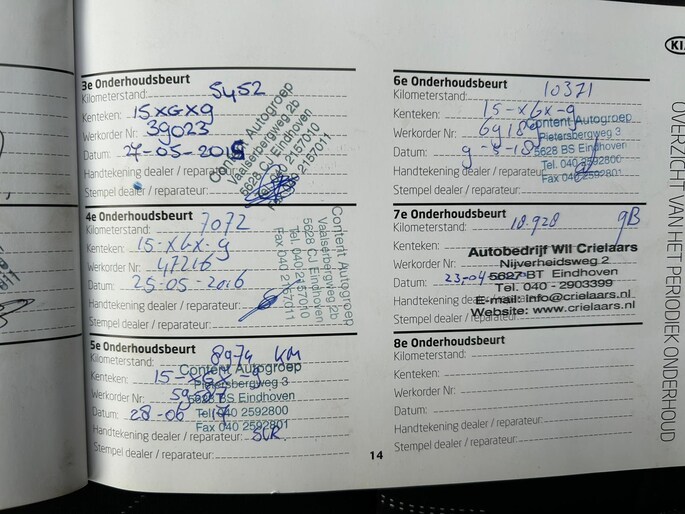 3e Onderhoudsbeurt
Kilometerstand: 5452
Kenteken: 15XGX9
Werkorder Nr: 39023
Datum: 27-05-2015
Handtekening dealer / reparateur:
Stempel dealer / reparateur:
Content Autogroep
Vaalserbergweg 2b
5628 CJ Eindhoven
Tel. 040 2157010
Fax 040 2157011
4e Onderhoudsbeurt
Kilometerstand: 7072
Kenteken: 15-XGX-9
Werkorder Nr: 47216
Datum: 25-05-2016
Handtekening dealer / reparateur:
Stempel dealer / reparateur:
Content Autogroep
Vaalserbergweg 2b
5628 CJ Eindhoven
Tel. 040 2157010
Fax 040 2157011
5e Onderhoudsbeurt
Kilometerstand: 8974 KM
Kenteken: 15-XGX-9
Werkorder Nr:
Datum: 28-06
Handtekening dealer / reparateur:
Stempel dealer / reparateur:
Content Autogroep
Pietersbergweg 3
5628 BS Eindhoven
Tel. 040 2592800
Fax 040 2592801
14
6e Onderhoudsbeurt
Kilometerstand: 10371
Kenteken: 15-XGX-9
Werkorder Nr:
Datum: 9-5-18
Handtekening dealer / reparateur:
Stempel dealer / reparateur:
Content Autogroep
Pietersbergweg 3
5628 BS Eindhoven
Tel. 040 2592800
Fax 040 2592801
7e Onderhoudsbeurt
Kilometerstand: 10.928
Kenteken:
Werkorder Nr:
Datum: 23-04
Handtekening dealer / reparateur:
Stempel dealer / reparateur:
Autobedrijf Wil Crielaars
Nijverheidsweg 2
5627 BT Eindhoven
Tel. 040 - 2903399
E-mail: info@crielaars.nl
Website: www.crielaars.nl
8e Onderhoudsbeurt
Kilometerstand:
Kenteken:
Werkorder Nr:
Datum:
Handtekening dealer / reparateur:
Stempel dealer / reparateur:
OVERZICHT VAN HET PERIODIEK ONDERHOUD